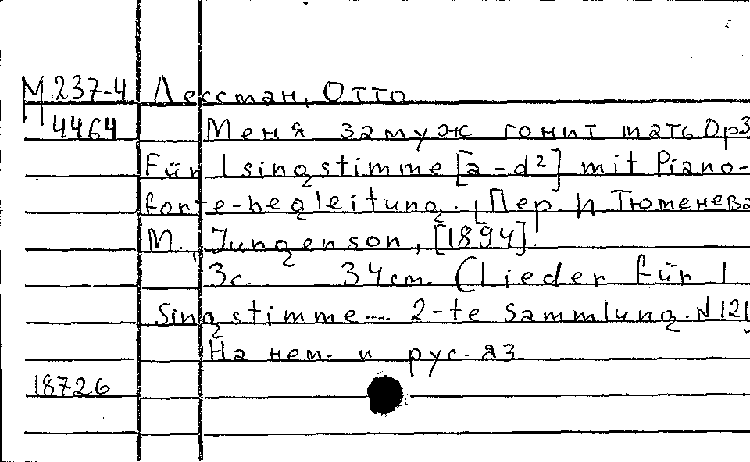 М 237-4 Лессман, Отто
П 4464 Меня замуж гонит мать Op3
Für 1 singstimme [a-d²] mit Piano-
forte-begleitung. Пер. И Тюменева
M., Jungenson, [1894].
3с. 34cm. (Lieder für 1
Singstimme.... 2-te Sammlung. N 121
На нем. и рус. яз.
18726